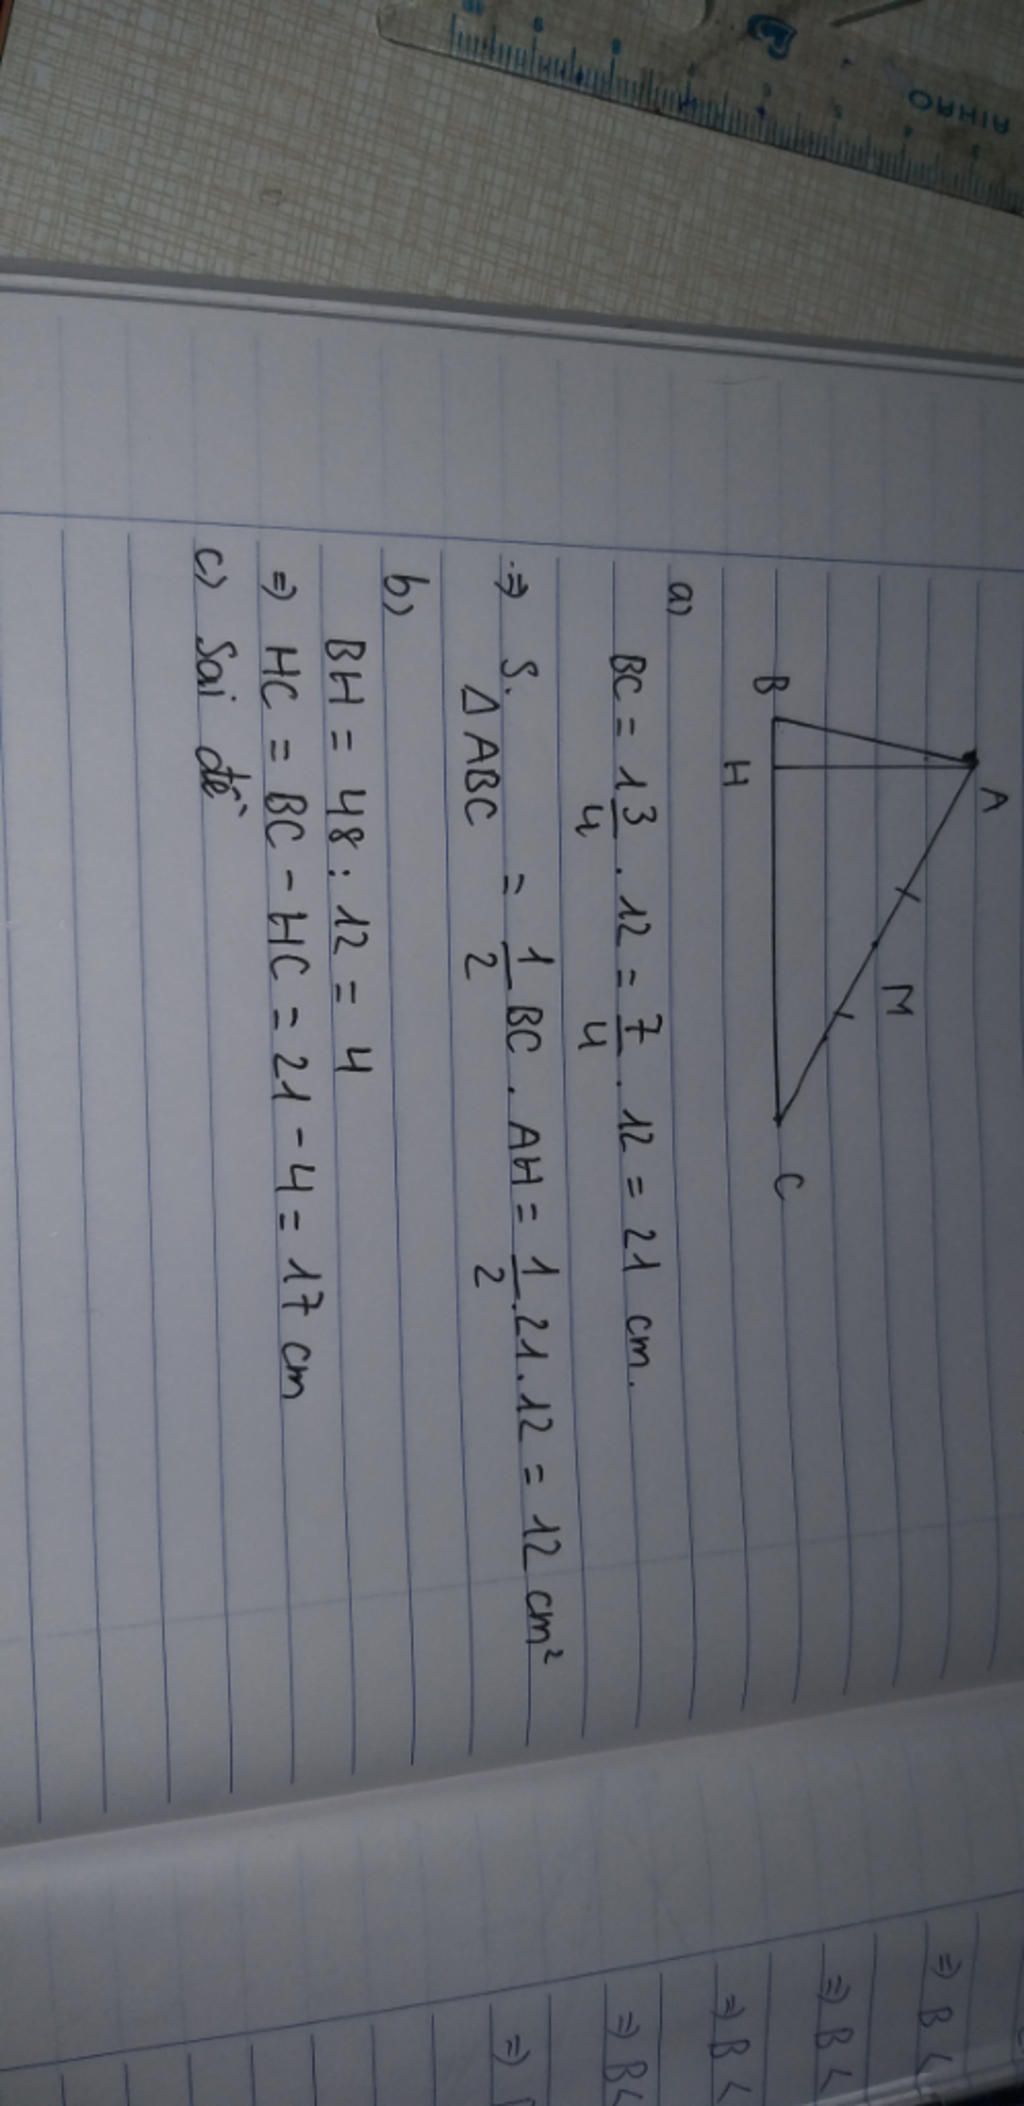 A
M
B
H
C
a)
BC = 1 3/4 . 12 = 7/4 . 12 = 21 cm.
=> S. ΔABC = 1/2 BC . AH = 1/2 . 21 . 12 = 12 cm²
b)
BH = 48 : 12 = 4
=> HC = BC - HC = 21 - 4 = 17 cm
c) Sai đề
=> B <
=> B <
=> B <
=> B <
=>